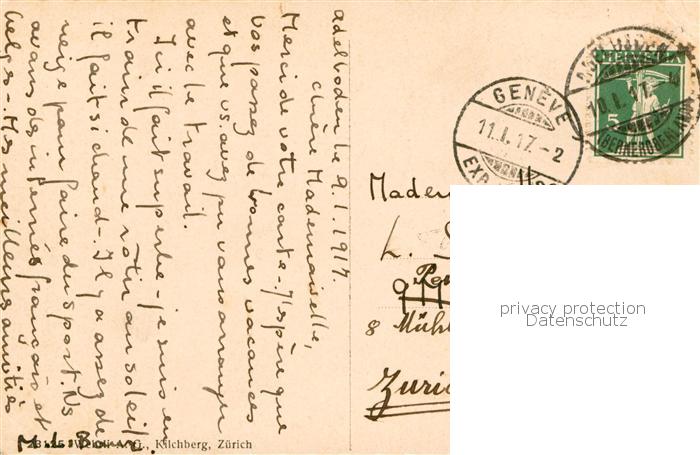 Adelboden le 9.1.1917.
Chère Mademoiselle,
Merci de votre carte. J'espère que
vos passez de bonnes vacances
et que vs. avez pu vous arranger
avec le travail.
Ici il fait superbe - je suis en
train de me rôtir au soleil
il fait si chaud - Il y a assez de
neige pour faire du sport. Ns
avons de internés français et
belges - Mes meilleures amitiés
23125 Wehrli A.-G., Kilchberg, Zürich
GENÈVE
11.I.17.-2
EXP.
10.I.17.
HELVETIA
5
Madem
L.
8 Mühl
Zuri
privacy protection
Datenschutz